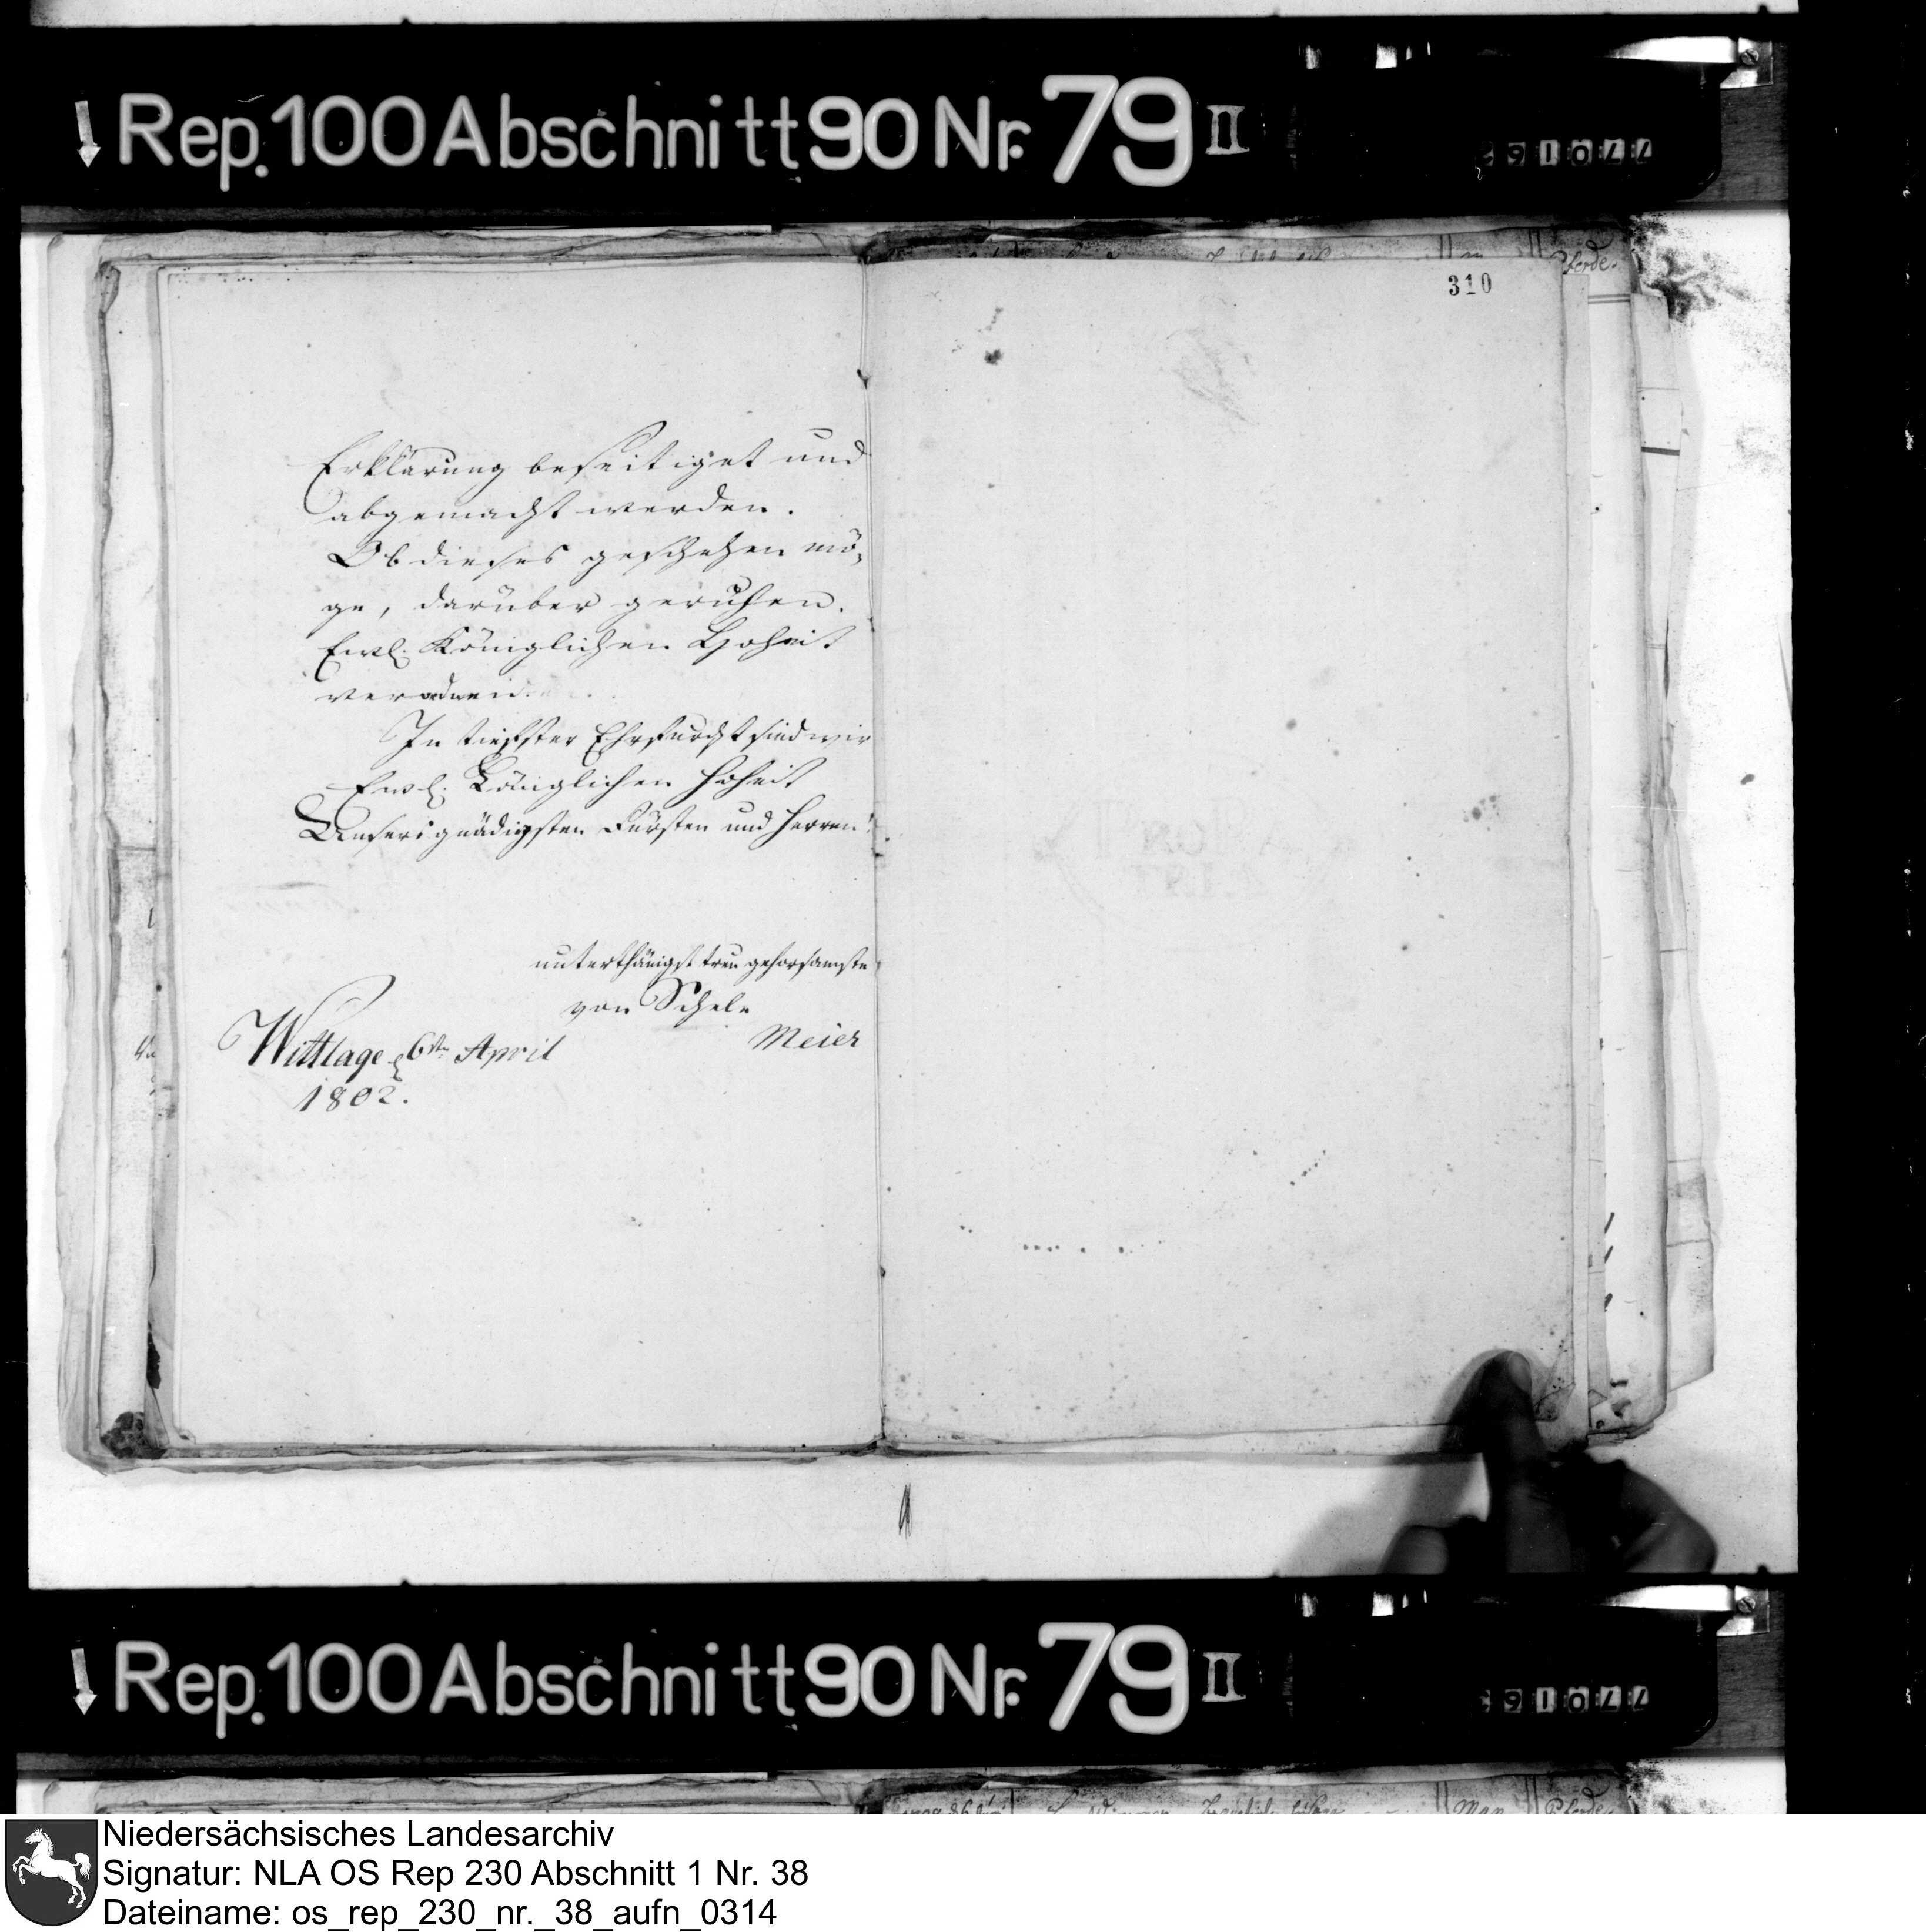 Rep. 100 Abschnitt 90 Nr. 79 II
Pferde.
310
Erklärung beseitiget und
abgemacht werden.
Ob dieses geschehen mö-
ge, darüber geruhen.
Ewl. Königlichen Hoheit
In tiefster Ehrfurcht sind wir
Ewl. Königlichen Hoheit
Unsers gnädigsten Fürsten und Herren
unterthänigst treu gehorsamste
von Schele
Meier
Wittlage d 6ten April
1802.
Rep. 100 Abschnitt 90 Nr. 79 II
Pferde.
Niedersächsisches Landesarchiv
Signatur: NLA OS Rep 230 Abschnitt 1 Nr. 38
Dateiname: os_rep_230_nr._38_aufn_0314